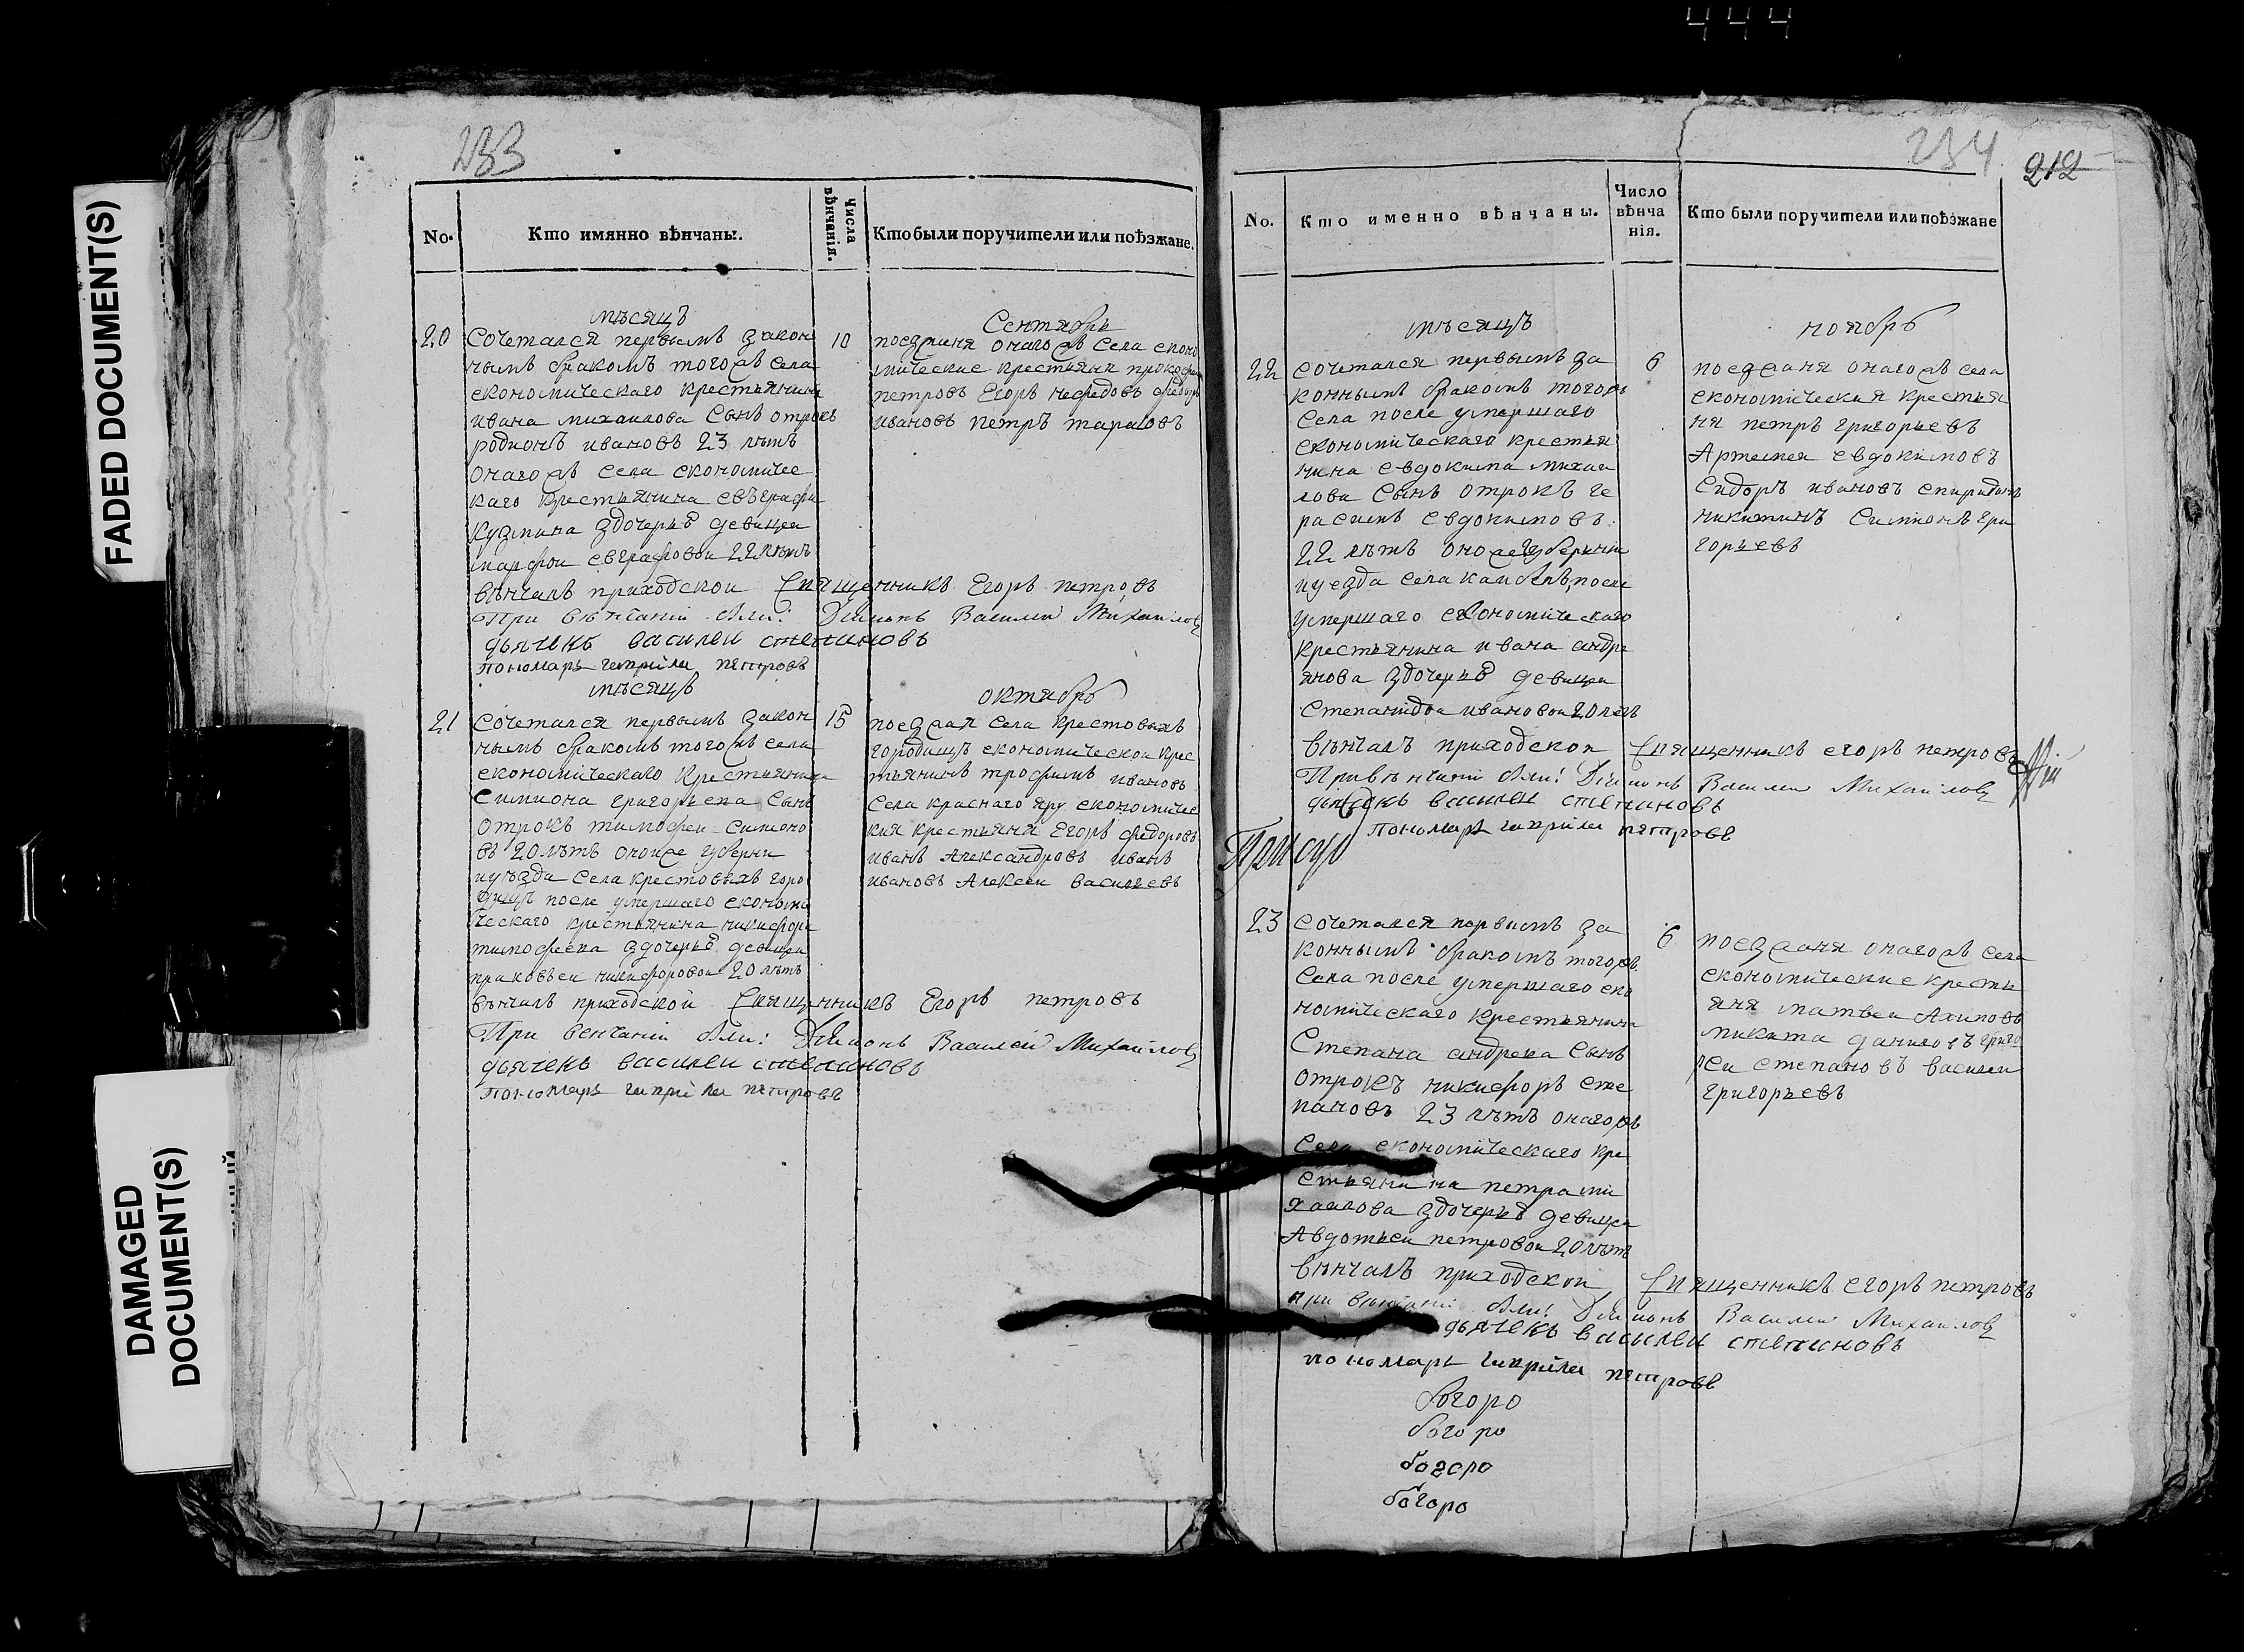 444
FADED DOCUMENT(S)
DAMAGED
DOCUMENT(S)
233
No.
Кто имянно вѣнчаны.
Числа
вѣнчанія.
Кто были поручители или поѣзжане.
мѣсяцъ
Сентябрь
20
сочетался первымъ закон
нымъ бракомъ тогожъ села
економическаго крестьянина
ивана михаилова Сынъ отрокъ
родионъ ивановъ 23 лѣтъ
онагожъ села економичес
каго крестьянина евъграфа
кузмина здочерью девицеи
марфои евграфовои 22 лѣтъ
10
поезжаня онагожъ села еконо
мические крестьяня прокофеи
петровъ Егоръ нефедовъ федоръ
ивановъ петръ тарасовъ
вѣнчалъ приходскои Священникъ Егоръ петровъ
При вѣнчаніи были: Діаконъ Василей Михаиловъ
дьячекъ василеи степановъ
пономарь гаврила петровъ
мѣсяцъ
октябрь
21
сочетался первымъ закон
нымъ бракомъ тогожъ села
економическаго крестьянина
Симиона григорьева Сынъ
отрокъ тимофеи симионо
въ 20 лѣтъ оное же губерни
иуѣзда села крестовыхъ горо
дищъ после умершаго економи
ческаго крестьянина никифора
тимофеева здочерью девицеи
прасковьеи никифоровои 20 лѣтъ
15
поезжая села крестовыхъ
городищъ економическои крес
тьянинъ трофимъ ивановъ
села краснаго яру економичес
кия крестьяня Егоръ федоровъ
иванъ Александровъ иванъ
ивановъ Алексеи васильевъ
вѣнчалъ приходской Священникъ Егоръ петровъ
При венчаніи были: Діаконъ Василей Михаиловъ
дьячекъ василеи степановъ
пономарь гаврила петровъ
234
212
No.
Кто именно вѣнчаны.
Число
вѣнча
нія.
Кто были поручители или поѣзжане
мѣсяцъ
ноябрь
22
сочетался первымъ за
коннымъ бракомъ тогожъ
села после умершаго
економическаго крестья
нина евдокима михаи
лова Сынъ отрокъ ге
расимъ евдокимовъ
22 лѣтъ оное же губернии
иуезда села после
умершаго економическаго
крестьянина ивана андре
янова здочерью девицеи
степанидои ивановои 20 летъ
6
поезжаня онагожъ села
економическия крестья
ня петръ григорьевъ
Артемеи евдокимовъ
Сидоръ ивановъ спиридонъ
никитинъ Симионъ гри
горьевъ
вѣнчалъ приходскои Священникъ егоръ петровъ
При вѣнчаніи были: Діаконъ Василеи Михаиловъ
дьячокъ василеи степановъ
пономарь гаврила петровъ
23
сочетался первымъ за
коннымъ бракомъ тогожъ
села после умершаго еко
номическаго крестьянина
Степана андреева Сынъ
отрокъ никифоръ сте
пановъ 23 лѣтъ онагожъ
села економическаго кре
стьянина петра ми
хаилова здочерью девицеи
Авдотьеи петровои 20 лѣтъ
6
поезжаня онагожъ села
економические кресть
яня матвеи Архиповъ
микита даниловъ григо
реи степановъ василеи
григорьевъ
вѣнчалъ приходскои Священникъ егоръ петровъ
при вѣнчаніи были: Діаконъ Василеи Михаиловъ
дьячекъ василеи степановъ
пономарь гаврила петровъ
богоро
богоро
богоро
богоро